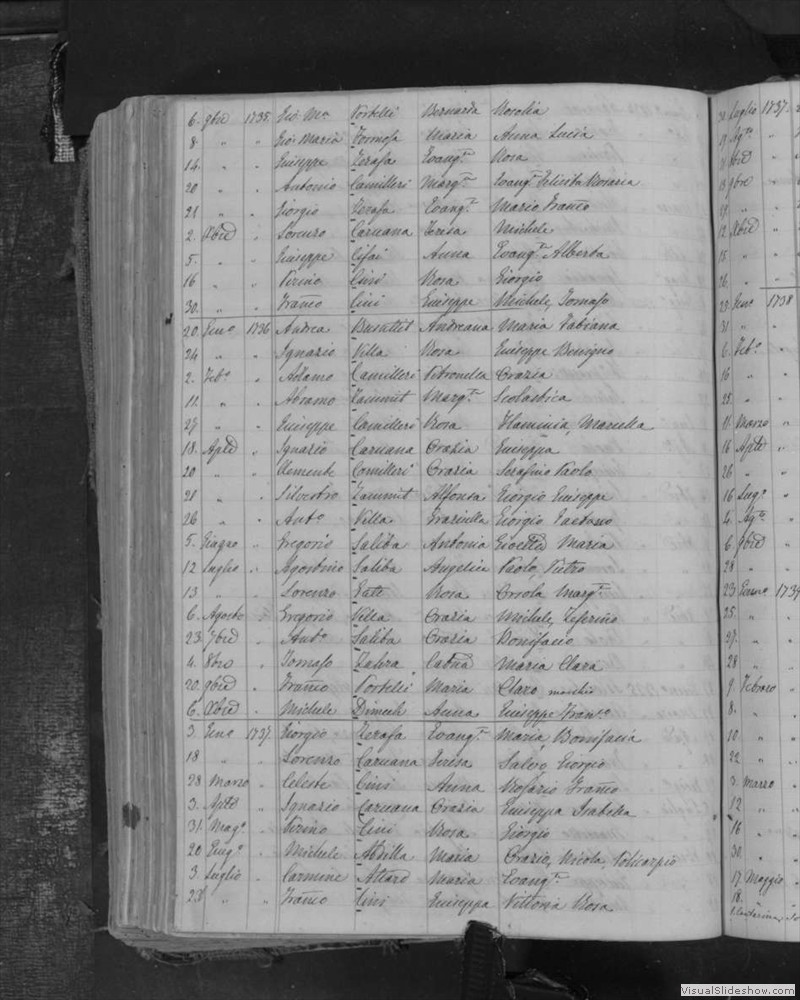 6. 9bre 1735. Gio: Ma. Portelli Bernarda Rosolia
8. " " Gio: Maria Formosa Maria Anna Lucia
14. " " Giuseppe Xerafa Evang.ta Rosa
20 " " Antonio Camilleri Marg.ta Evang.ta Felicita Rosaria
21 " " Giorgio Xerafa Evang.ta Mario Franco
2. Xbre " Lorenzo Caruana Teresa Michele
5. " " Giuseppe Cifai Anna Evang.ta Alberta
16 " " Pirino Cini Rosa Giorgio
30. " " Franco Cini Giuseppa Michele, Tomaso
20. Genº 1736 Andrea Busuttil Andreana Maria Fabiana
24 " " Ignazio Villa Rosa Giuseppe Benigno
2. Febº " Adamo Camilleri Petronella Grazia
11. " " Abramo Zammit Marg.ta Scolastica
27. " " Giuseppe Camilleri Rosa Flaminia, Marcella
18. Aple " Ignazio Caruana Grazia Giuseppa
20 " " Clemente Camilleri Grazia Serafino Paolo
21 " " Silvestro Zammit Alfonsa Giorgio Giuseppe
26 " " Antº Villa Graziella Giorgio Gaetano
5. Giugno " Gregorio Saliba Antonia Maria
12 Luglio " Agostino Saliba Angelica Paolo, Pietro
13 " " Lorenzo Rosa Orsola Marg.ta
6. Agosto " Gregorio Vella Grazia Michele, Zeferino
23. 7bre " Antº Saliba Grazia Bonifacio
4. 8bre " Tomaso Zahra Maria Clara
20. 9bre " Franco Portelli Maria Claro maschio
6. Xbre " Michele Dimech Anna Giuseppe Francº
3. Genº 1737 Giorgio Xerafa Evang.ta Maria Bonifacia
18 " " Lorenzo Caruana Teresa Salvo Giorgio
28 Marzo " Celeste Cini Anna Rosario Franco
3. Aple " Ignazio Caruana Grazia Giuseppa Isabella
31. Magº " Pirino Cini Rosa Giorgio
20 Giugº " Michele Abdilla Maria Grazio, Nicola, Policarpio
3. Luglio " Carmine Attard Maria Evang.ta
23 " " Franco Cini Giuseppa Vittoria Rosa
Luglio 1737
Agº
9bre
Xbre
Genº 1738
Febº
Marzo
Aple
Lugº
Agº
9bre
Genº 1739
Febraro
Marzo
17. Maggio
18.
VisualSlideshow.com